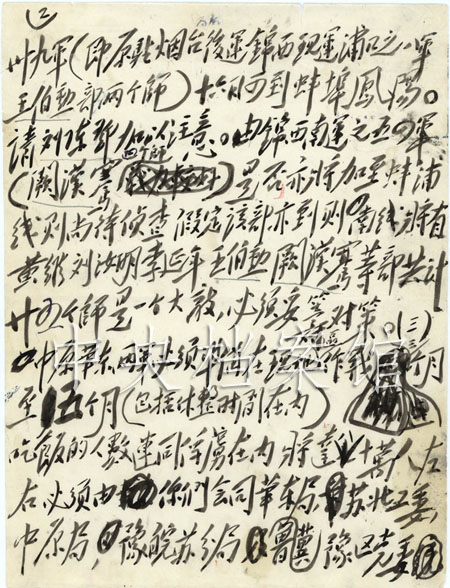 卅九军(即原駐烟台後運錦西現運浦口之一军
王伯勋部两个师)十六日可到蚌埠鳳陽。
請刘陈邓加以注意。由錦西南運之五四军
(阙漢騫四个师)是否亦将加至蚌浦
线则尚待侦查假定该部亦到则南线将有
黄维刘汝明李延年王伯勋阙漢騫等部共计
廿五个师是一个大敵,必须妥筹对策。(三)
中原华东两军必须准备在现地区作战三个月
至五个月(包括休整时间在内)
吃飯的人数連同俘虏在内将達八十萬人左
右必须由你們会同华东局,苏北工委
中原局,豫皖苏分局,魯冀豫区党委
中央档案馆